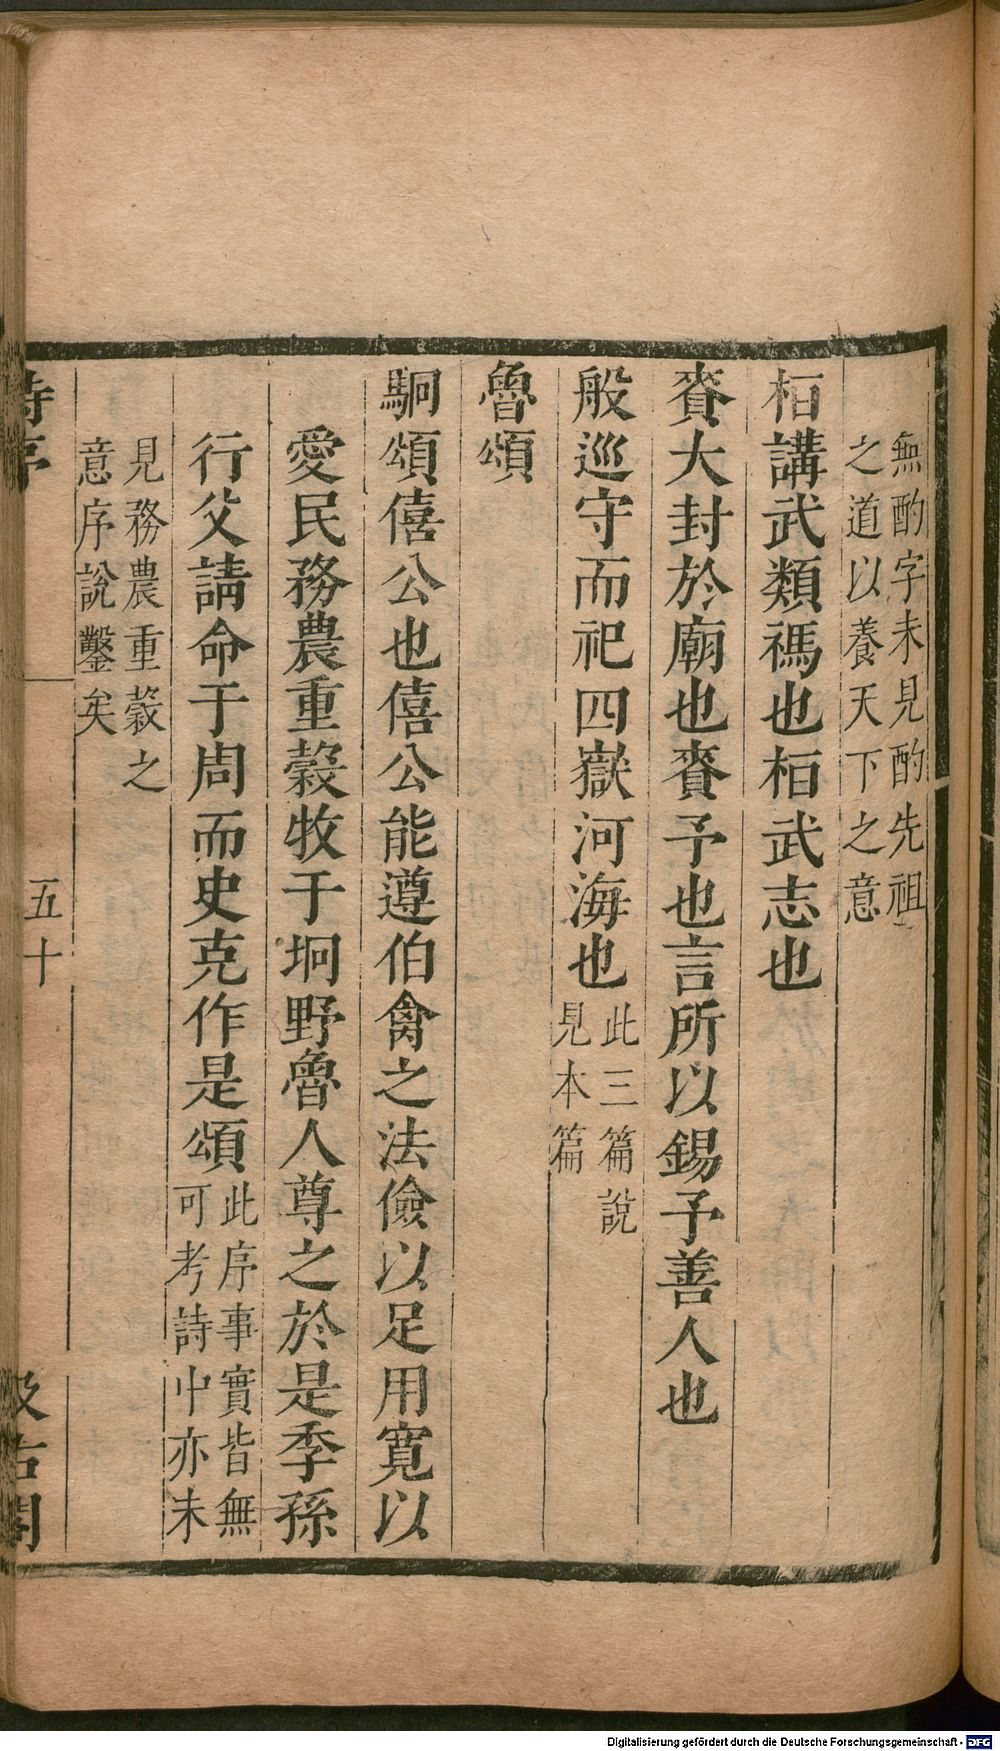 無酌字未見酌先祖
之道以養天下之意
桓講武類禡也桓武志也
賚大封於廟也賚予也言所以錫予善人也
般巡守而祀四嶽河海也此三篇說
見本篇
魯頌
駉頌僖公也僖公能遵伯禽之法儉以足用寬以
愛民務農重穀牧于坰野魯人尊之於是季孫
行父請命于周而史克作是頌此序事實皆無
可考詩中亦未
見務農重穀之
意序說鑿矣
詩序
五十
汲古閣
Digitalisierung gefördert durch die Deutsche Forschungsgemeinschaft - DFG